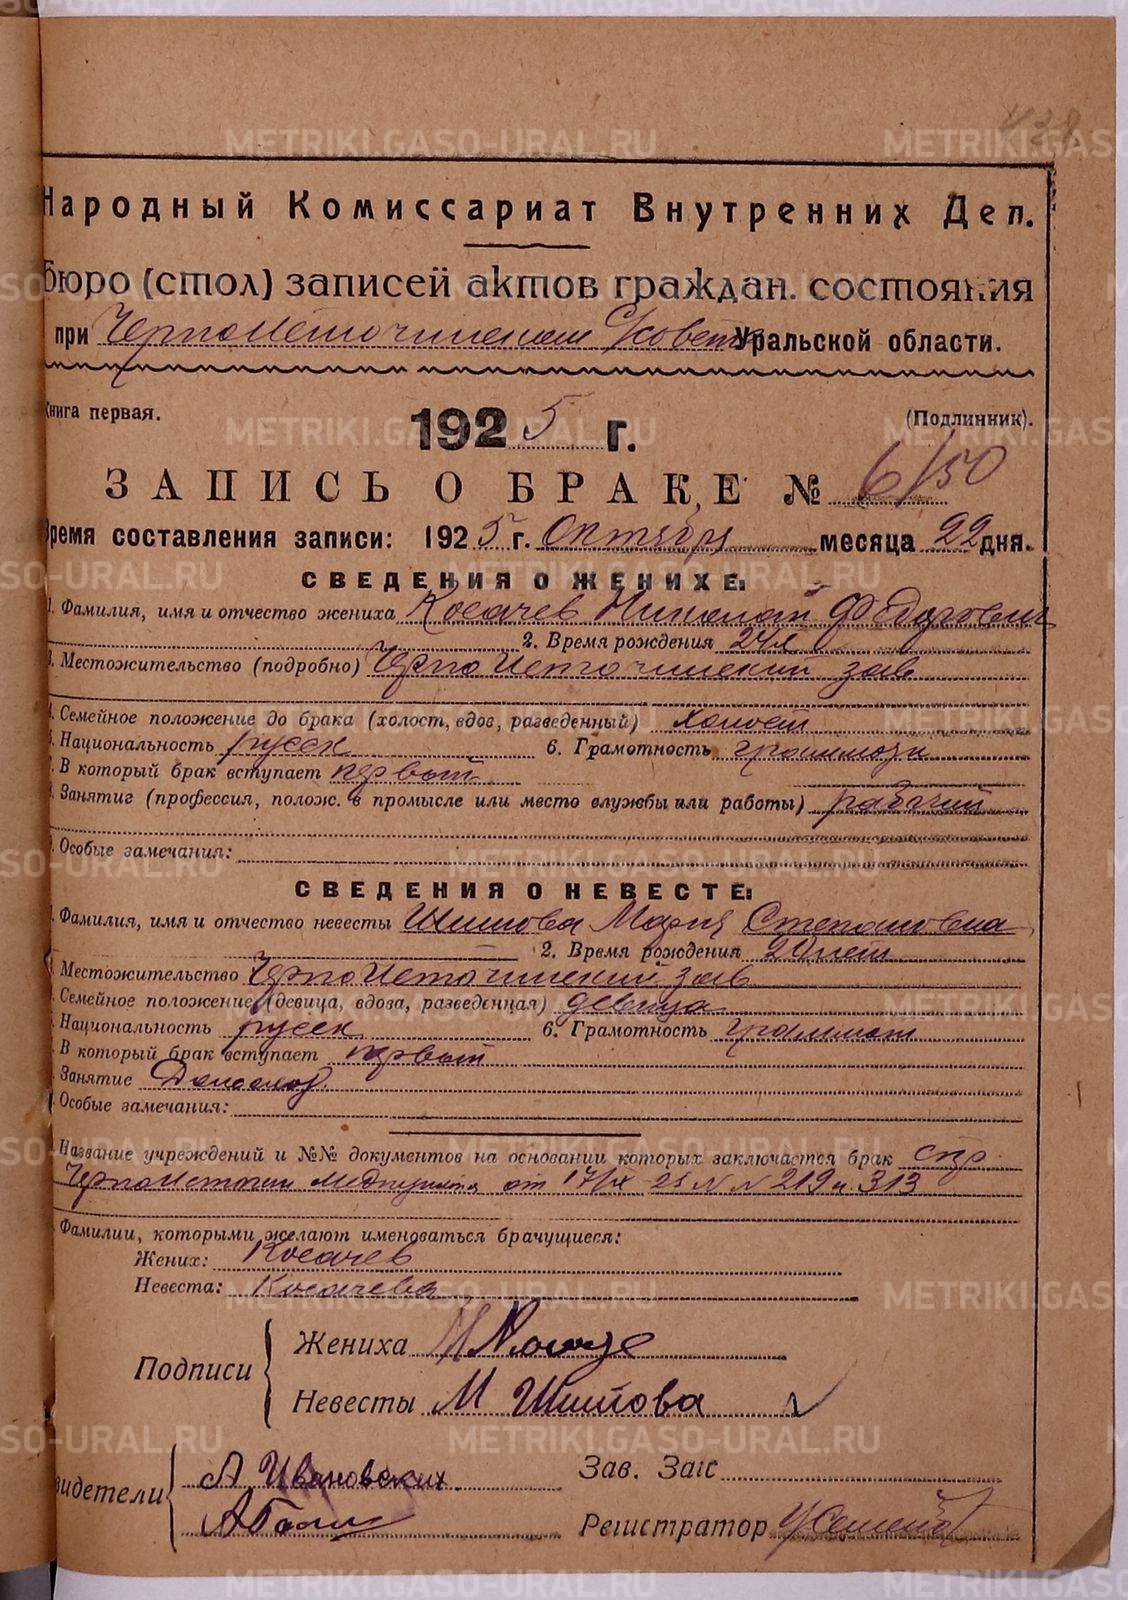 438
Народный Комиссариат Внутренних Дел.
бюро (стол) записей актов граждан. состояния
при Черноисточинском Совете Уральской области.
Книга первая. (Подлинник).
1925 г.
ЗАПИСЬ О БРАКЕ № 6/50
Время составления записи: 1925 г. Октября месяца 22 дня.
СВЕДЕНИЯ О ЖЕНИХЕ:
1. Фамилия, имя и отчество жениха Косачев Николай Федорович
2. Время рождения 24 л
3. Местожительство (подробно) Черноисточинский зав
4. Семейное положение до брака (холост, вдов, разведенный) холост
5. Национальность русск 6. Грамотность грамотн
7. В который брак вступает первый
8. Занятие (профессия, полож. в промысле или место службы или работы) рабочий
9. Особые замечания:
СВЕДЕНИЯ О НЕВЕСТЕ:
1. Фамилия, имя и отчество невесты Шипова Мария Степановна
2. Время рождения 20 лет
3. Местожительство Черноисточинский зав
Семейное положение (девица, вдова, разведенная) девица
Национальность русск 6. Грамотность грамотн
В который брак вступает первый
Занятие Домохоз.
Особые замечания:
Название учреждений и №№ документов на основании которых заключается брак спр.
Черноисточин медпункта от 17/IX-25 № 219 и 313
Фамилии, которыми желают именоваться брачущиеся:
Жених: Косачев
Невеста: Косачева
Подписи
Жениха Н
Невесты М Шипова
видетели
А Ивановских
Зав. Загс
Регистратор
METRIKI.GASO-URAL.RU